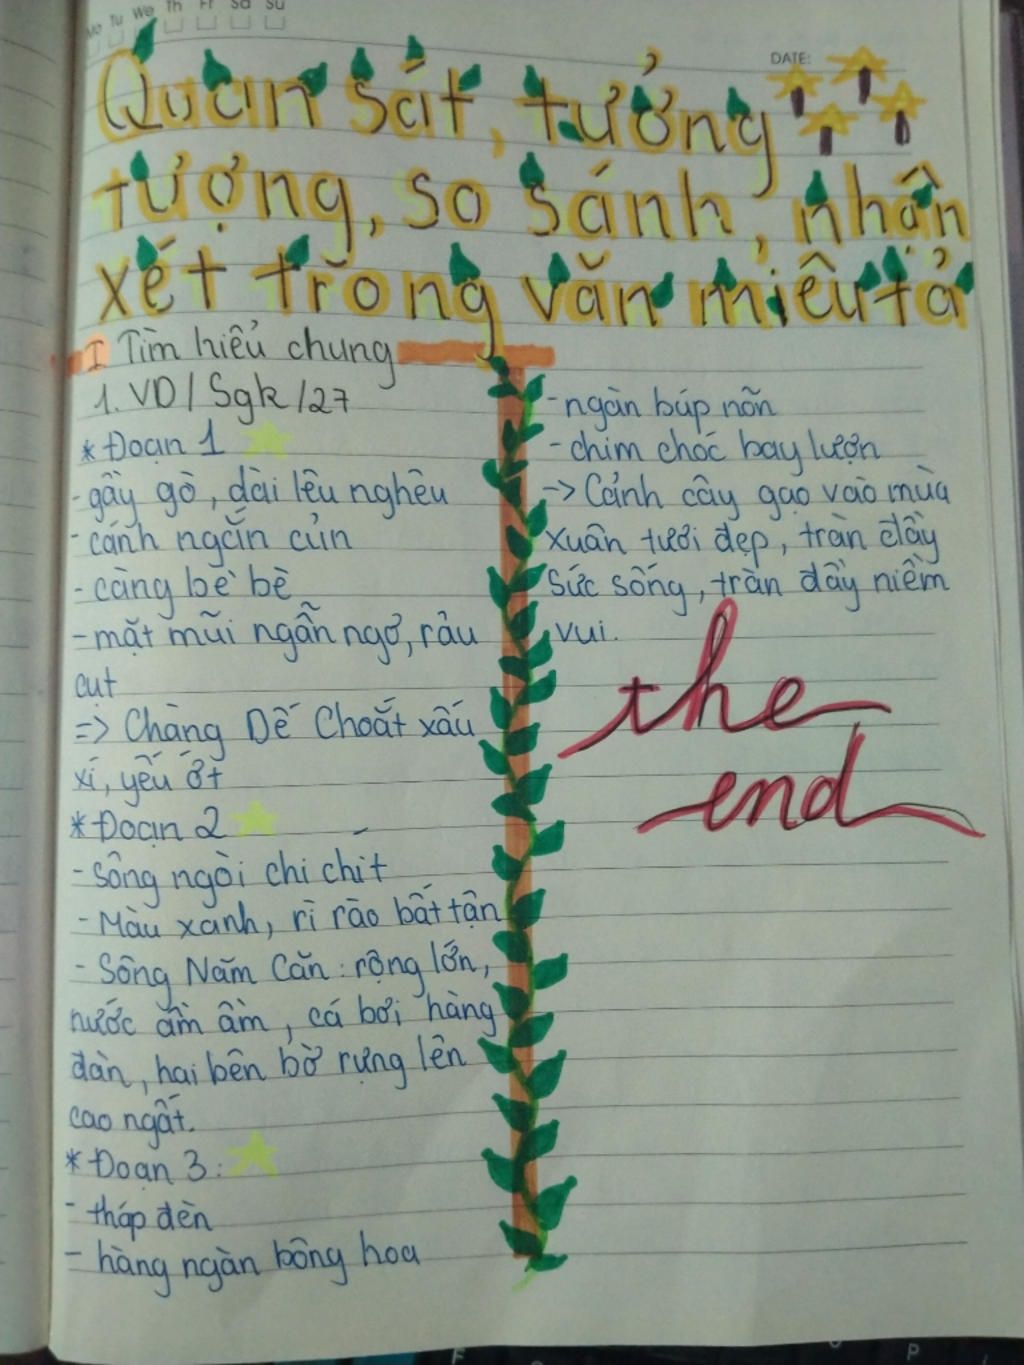 Mo Tu We Th Fr Sa Su
DATE:
Quan sát, tưởng
tượng, so sánh, nhận
xét trong văn miêu tả
I Tìm hiểu chung
1. VD / Sgk /27
* Đoạn 1
- gầy gò, dài lêu nghêu
- cánh ngắn củn
- càng bè bè
- mặt mũi ngẩn ngơ, râu
cụt
=> Chàng Dế Choắt xấu
xí, yếu ớt
* Đoạn 2
- sông ngòi chi chít
- Màu xanh, rì rào bất tận
- Sông Năm Căn: rộng lớn,
nước ầm ầm, cá bơi hàng
đàn, hai bên bờ rựng lên
cao ngất.
* Đoạn 3:
- tháp đèn
- hàng ngàn bông hoa
- ngàn búp nõn
- chim chóc bay lượn
-> Cảnh cây gạo vào mùa
xuân tươi đẹp, tràn đầy
sức sống, tràn đầy niềm
vui.
the
end